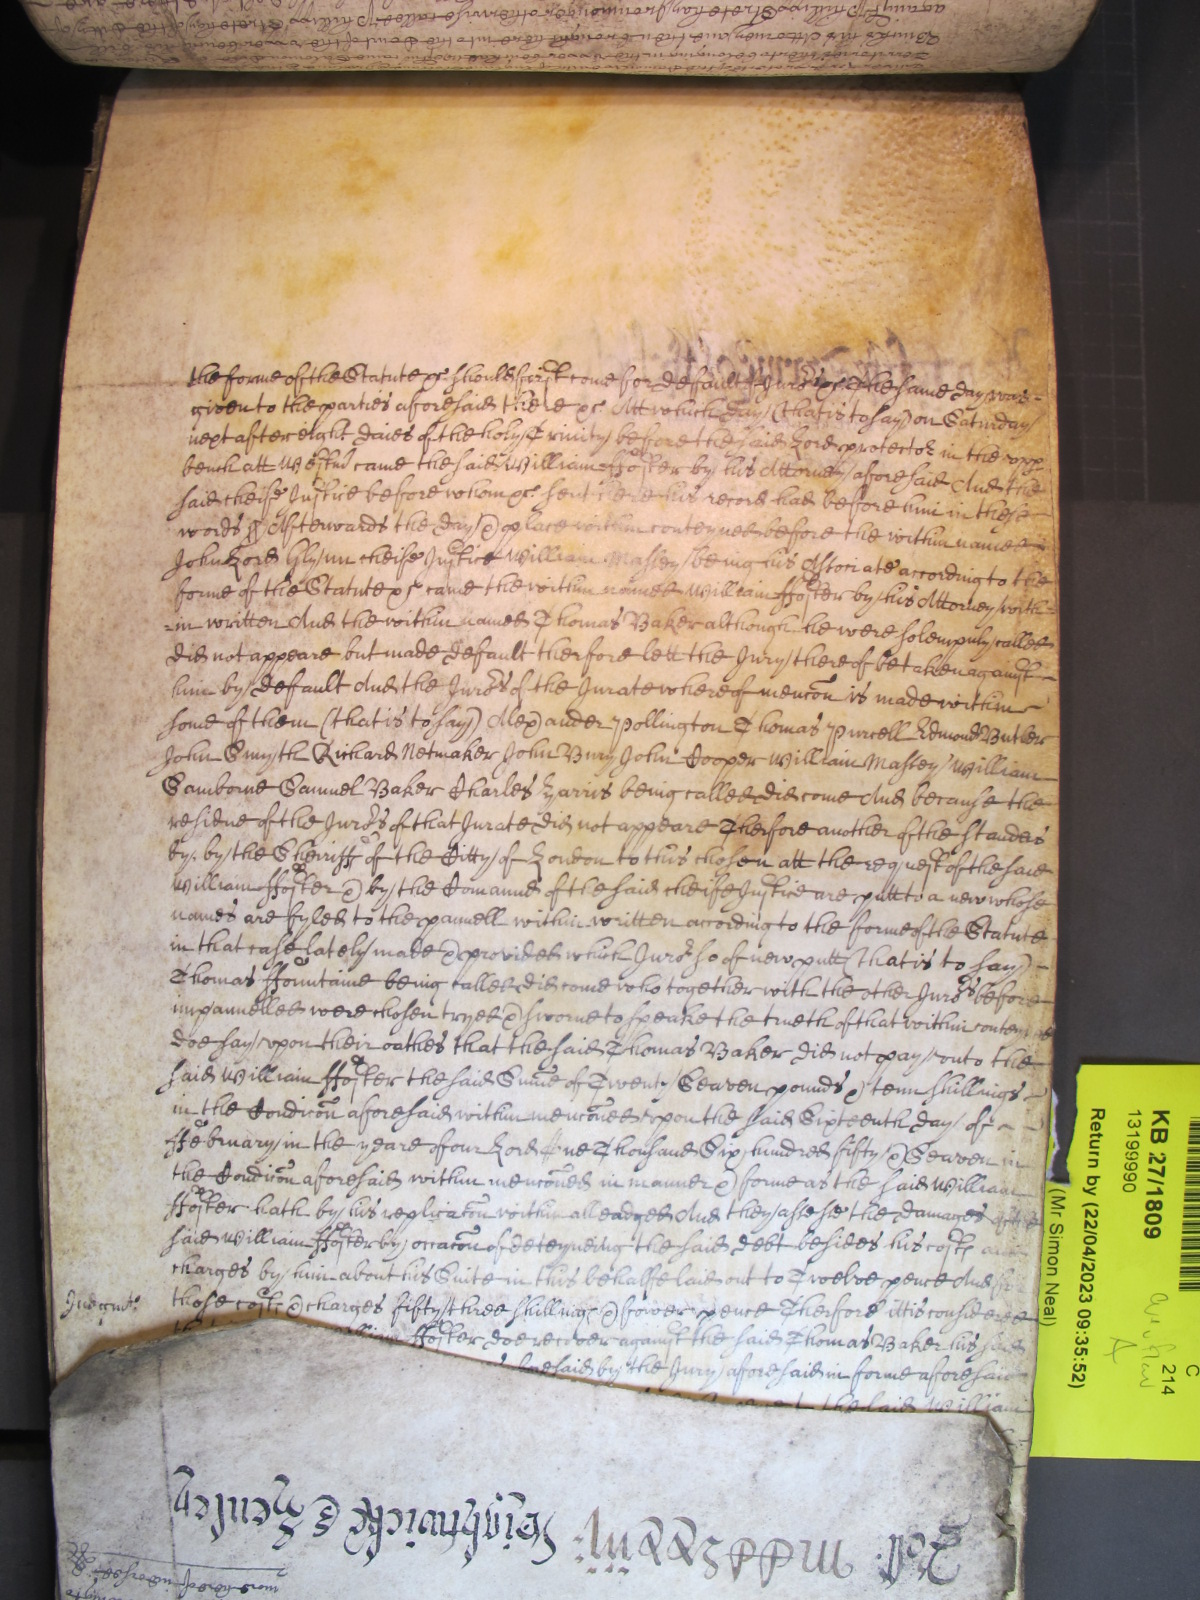 the forme of the Statute &c should first come for default of Juro:s &c The same day was
given to the parties aforesaid there &c Att which day (that is to say) on Saturday
next after eight daies of the holy Trinity before the said Lord protector in the upp
bench att Westm̃ came the said William ffoster by his Attorney aforesaid And the
said cheife Justice before whom &c sent here his record had before him in these
words ss Afterwards the day & place within conteyned before the within named
John Lord Glynn cheife Justice William Massey being his Associate according to the
forme of the Statute &c came the within named William ffoster by his Attorney with
in written And the within named Thomas Baker although he were solempnly called
did not appeare but made default therfore lett the Jury thereof be taken against
him by default And the Juro:s of the Jurate whereof menc̃on is made within
some of them (that is to say) Alexander Pollington Thomas Purcell Edmond Butler
John Smyth Richard Netmaker John Bury John Cooper William Massey William
Samborne Samuel Baker Charles Harris being called did come And because the
residue of the Juro:s of that Jurate did not appeare Therfore another of the standers
by, by the Sheriffs of the Citty of London to this chosen att the request of the said
William ffoster & by the Com̃and of the said cheife Justice are putt to a new whose
names are fyled to the pannell within written according to the forme of the Statute
in that case lately made & provided which Juro:s so of new putt (that is to say)
Thomas ffountaine being called did come who together with the other Juro:s before
impannelled were chosen tryed & sworne to speake the trueth of that within conteyned
doe say upon their oathes that the said Thomas Baker did not pay unto the
said William ffoster the said Sum̃e of Twenty Seaven pounds & tenn shillings
in the Condic̃on aforesaid within menc̃oned upon the said Sixteenth day of
ffebruary in the yeare of our Lord One Thousand Six hundred fifty & Seaven in
the Condic̃on aforesaid within menc̃oned in manner & forme as the said William
ffoster hath by his replicac̃on within alleadged And they assesse the damages of the
said William ffoster by occac̃on of deteyneing the said debt besides his costs and
charges by him about his Suite in this behalfe laid out to Twelve pence And for
Judgmt:
those costs & charges fifty three shillings & fower pence Therfore itt is considered
ffoster doe recover against the said Thomas Baker his said
aforesaid by the Jury aforesaid in forme aforesaid
the said William
KB 27/1809
13199990
Return by (22/04/2023 09:35:52)
(Mr Simon Neal)
C
214
Wightwicke & Henley